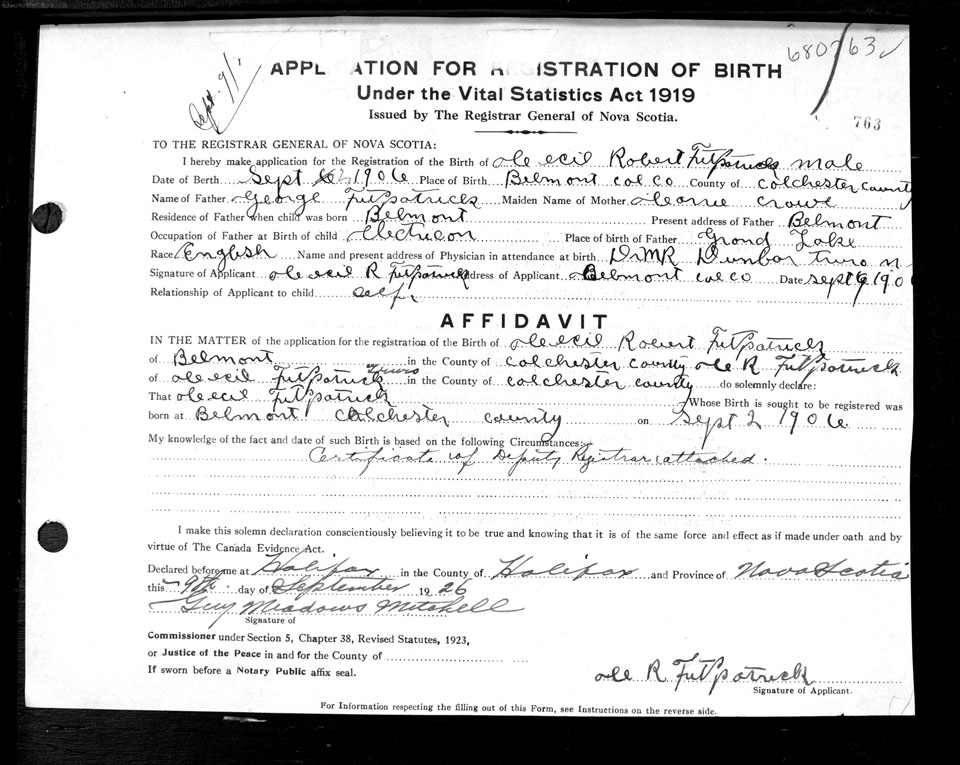 680763
Sept. 9/
APPL ATION FOR R ISTRATION OF BIRTH
Under the Vital Statistics Act 1919
Issued by The Registrar General of Nova Scotia.
763
TO THE REGISTRAR GENERAL OF NOVA SCOTIA:
I hereby make application for the Registration of the Birth of Robert Fitzpatrick male
Date of Berth Sept 2, 1906 Place of Birth Belmont col co County of Colchester county
Name of Father George Fitzpatrick Maiden Name of Mother crowe
Residence of Father when child was born Belmont Present address of Father Belmont
Occupation of Father at Birth of child Place of birth of Father Grand Lake
Race English Name and present address of Physician in attendance at birth Dr M R Dunbar truro n.
Signature of Applicant R Fitzpatrick Address of Applicant Belmont col co Date sept 9 190
Relationship of Applicant to child self
AFFIDAVIT
IN THE MATTER of the application for the registration of the Birth of Robert Fitzpatrick
of Belmont in the County of colchester county R Fitzpatrick
of Fitzpatrick in the County of colchester county do solemnly declare:
That Fitzpatrick Whose Birth is sought to be registered was
born at Belmont Colchester county on Sept 2 1906
My knowledge of the fact and date of such Birth is based on the following Circumstances:
Certificate of Deputy Registrar attached.
I make this solemn declaration conscientiously believing it to be true and knowing that it is of the same force and effect as if made under oath and by
virtue of The Canada Evidence Act.
Declared before me at Halifax in the County of Halifax and Province of Nova Scotia
this 9th. day of September 1926
Guy Meadows Mitchell
Signature of
Commissioner under Section 5, Chapter 38, Revised Statutes, 1923,
or Justice of the Peace in and for the County of
If sworn before a Notary Public affix seal.
R Fitzpatrick
Signature of Applicant.
For Information respecting the filling out of this Form, see Instructions on the reverse side.